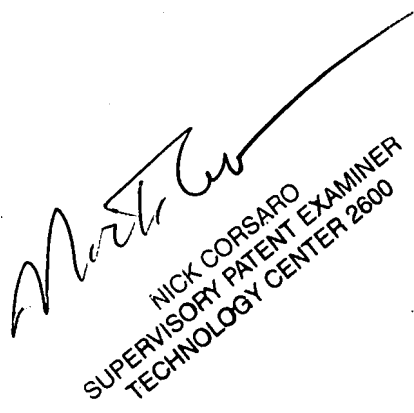 NICK CORSARO
SUPERVISORY PATENT EXAMINER
TECHNOLOGY CENTER 2600